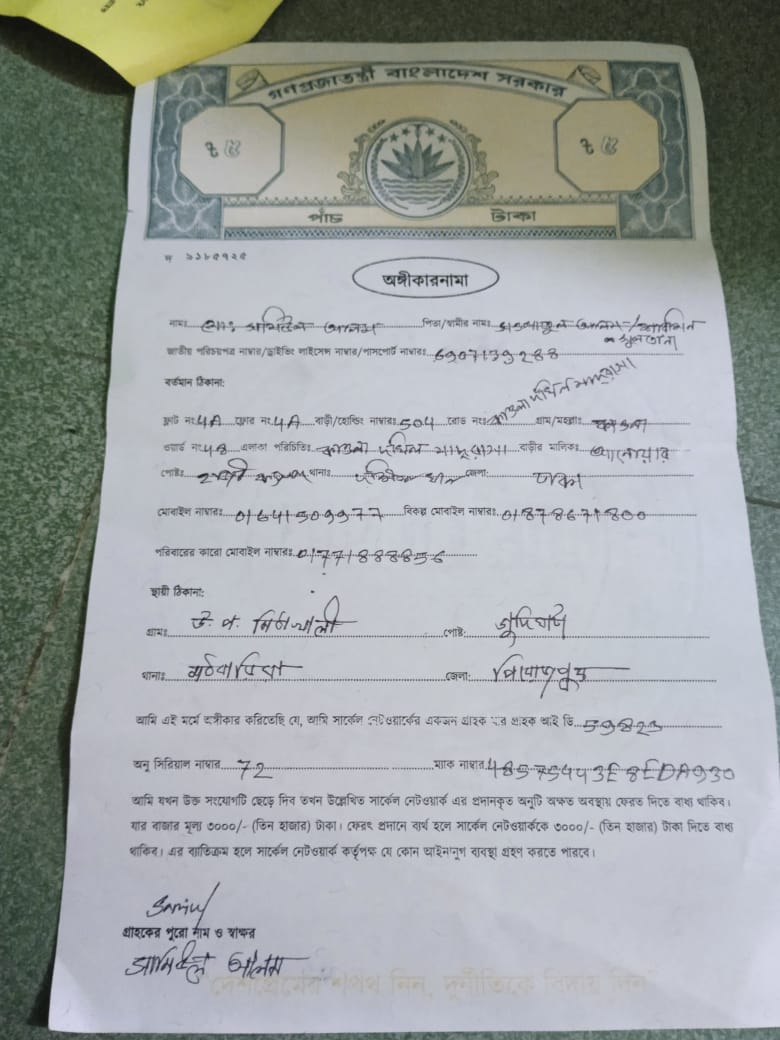 গণপ্রজাতন্ত্রী বাংলাদেশ সরকার
৳ ৫ ৳ ৫
পাঁচ টাকা
৯১৮৫৭২৫
অঙ্গীকারনামা
নামঃ মোঃ সামিউল আলম পিতা/স্বামীর নামঃ আলম /
সুলতানা
জাতীয় পরিচয়পত্র নাম্বার/ড্রাইভিং লাইসেন্স নাম্বার/পাসপোর্ট নাম্বারঃ 6907139288
বর্তমান ঠিকানা:
ফ্লাট নং 4A ফ্লোর নং 4A বাড়ী/হোল্ডিং নাম্বারঃ 504 রোড নং কাওলা দখিল মাদ্রাসা গ্রাম/মহল্লাঃ কাওলা
ওয়ার্ড নং 48 এলাকা পরিচিতিঃ কাওলা দখিল মাদ্রাসা বাড়ীর মালিকঃ আনোয়ার
পোষ্টঃ থানাঃ দক্ষিণখান জেলা: ঢাকা
মোবাইল নাম্বারঃ 01641509977 বিকল্প মোবাইল নাম্বারঃ 01878671800
পরিবারের কারো মোবাইল নাম্বারঃ 01771888856
স্থায়ী ঠিকানা:
গ্রামঃ উঃ পঃ মিঠাখালী পোষ্ট:
থানাঃ মঠবাড়িয়া জেলা: পিরোজপুর
আমি এই মর্মে অঙ্গীকার করিতেছি যে, আমি সার্কেল নেটওয়ার্কের একজন গ্রাহক যার গ্রাহক আই ডি 59823
অনু সিরিয়াল নাম্বার 72 ম্যাক নাম্বার 48575443E8EDA930
আমি যখন উক্ত সংযোগটি ছেড়ে দিব তখন উল্লেখিত সার্কেল নেটওয়ার্ক এর প্রদানকৃত অনুটি অক্ষত অবস্থায় ফেরত দিতে বাধ্য থাকিব।
যার বাজার মূল্য ৩০০০/- (তিন হাজার) টাকা। ফেরৎ প্রদানে ব্যর্থ হলে সার্কেল নেটওয়ার্ককে ৩০০০/- (তিন হাজার) টাকা দিতে বাধ্য
থাকিব। এর ব্যতিক্রম হলে সার্কেল নেটওয়ার্ক কর্তৃপক্ষ যে কোন আইনানুগ ব্যবস্থা গ্রহণ করতে পারবে।
Samiul
গ্রাহকের পুরো নাম ও স্বাক্ষর
সামিউল আলম
দেশপ্রেমের শপথ নিন, দুর্নীতিকে বিদায় দিন